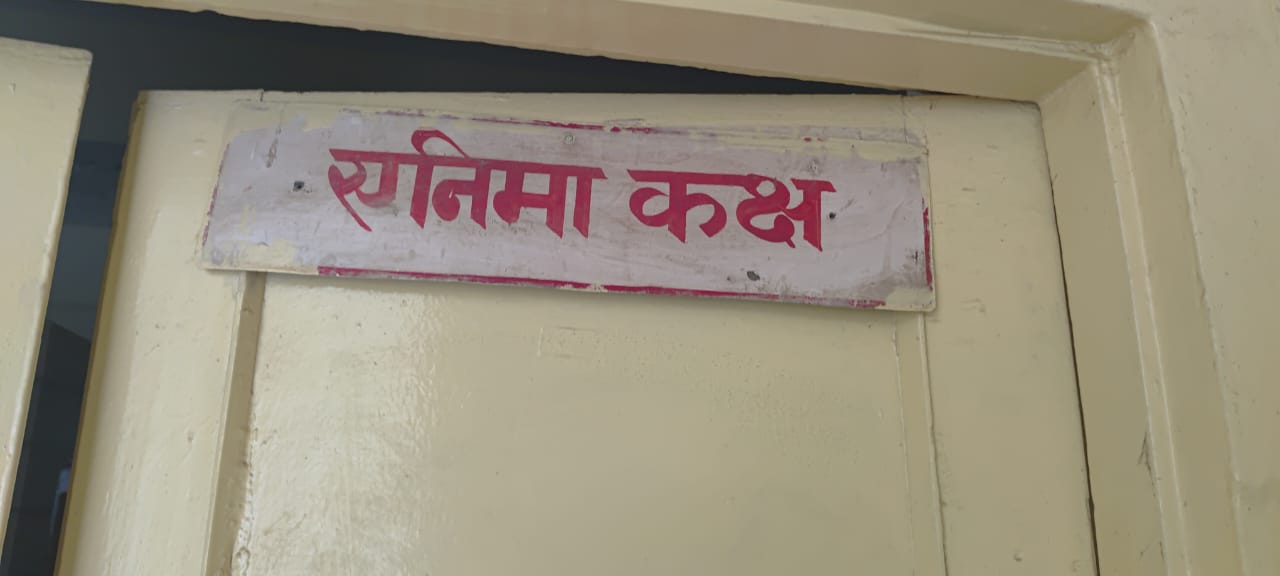 एनिमा कक्ष